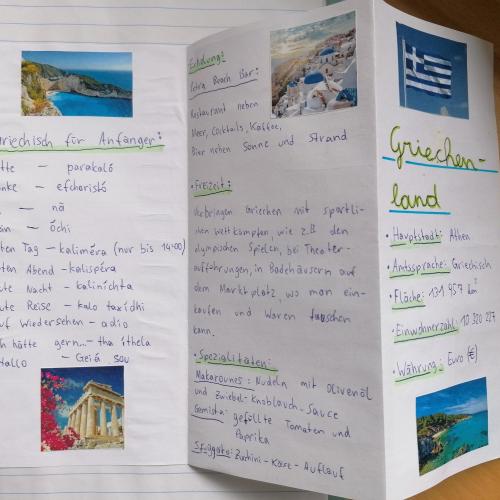 Griechisch für Anfänger:
– parakaló
– efcharistó
– nä
– óchi
Tag – kaliméra (nur bis 14:00)
Abend – kalispéra
Nacht – kaliníchta
Reise – kalo taxídhi
Wiedersehen – adio
hätte gern... – tha íthela
Hallo – Geiá sou
Erholung:
Petra Beach Bar:
Restaurant neben
Meer, Cocktails, Kaffee,
Bier neben Sonne und Strand
• Freizeit:
Verbringen Griechen mit sportli-
chen Wettkämpfen, wie z.B. den
olympischen Spielen, bei Theater-
aufführungen, in Badehäusern auf
dem Marktplatz, wo man ein-
kaufen und Waren tauschen
kann.
• Spezialitäten:
Makarounes: Nudeln mit Olivenöl
und Zwiebel-Knoblauch-Sauce
Gemista: gefüllte Tomaten und
Paprika
Sfuggato: Zuchini-Käse-Auflauf
Griechen-
land
• Hauptstadt: Athen
• Amtssprache: Griechisch
• Fläche: 131 957 km²
• Einwohnerzahl: 10 320 227
• Währung: Euro (€)